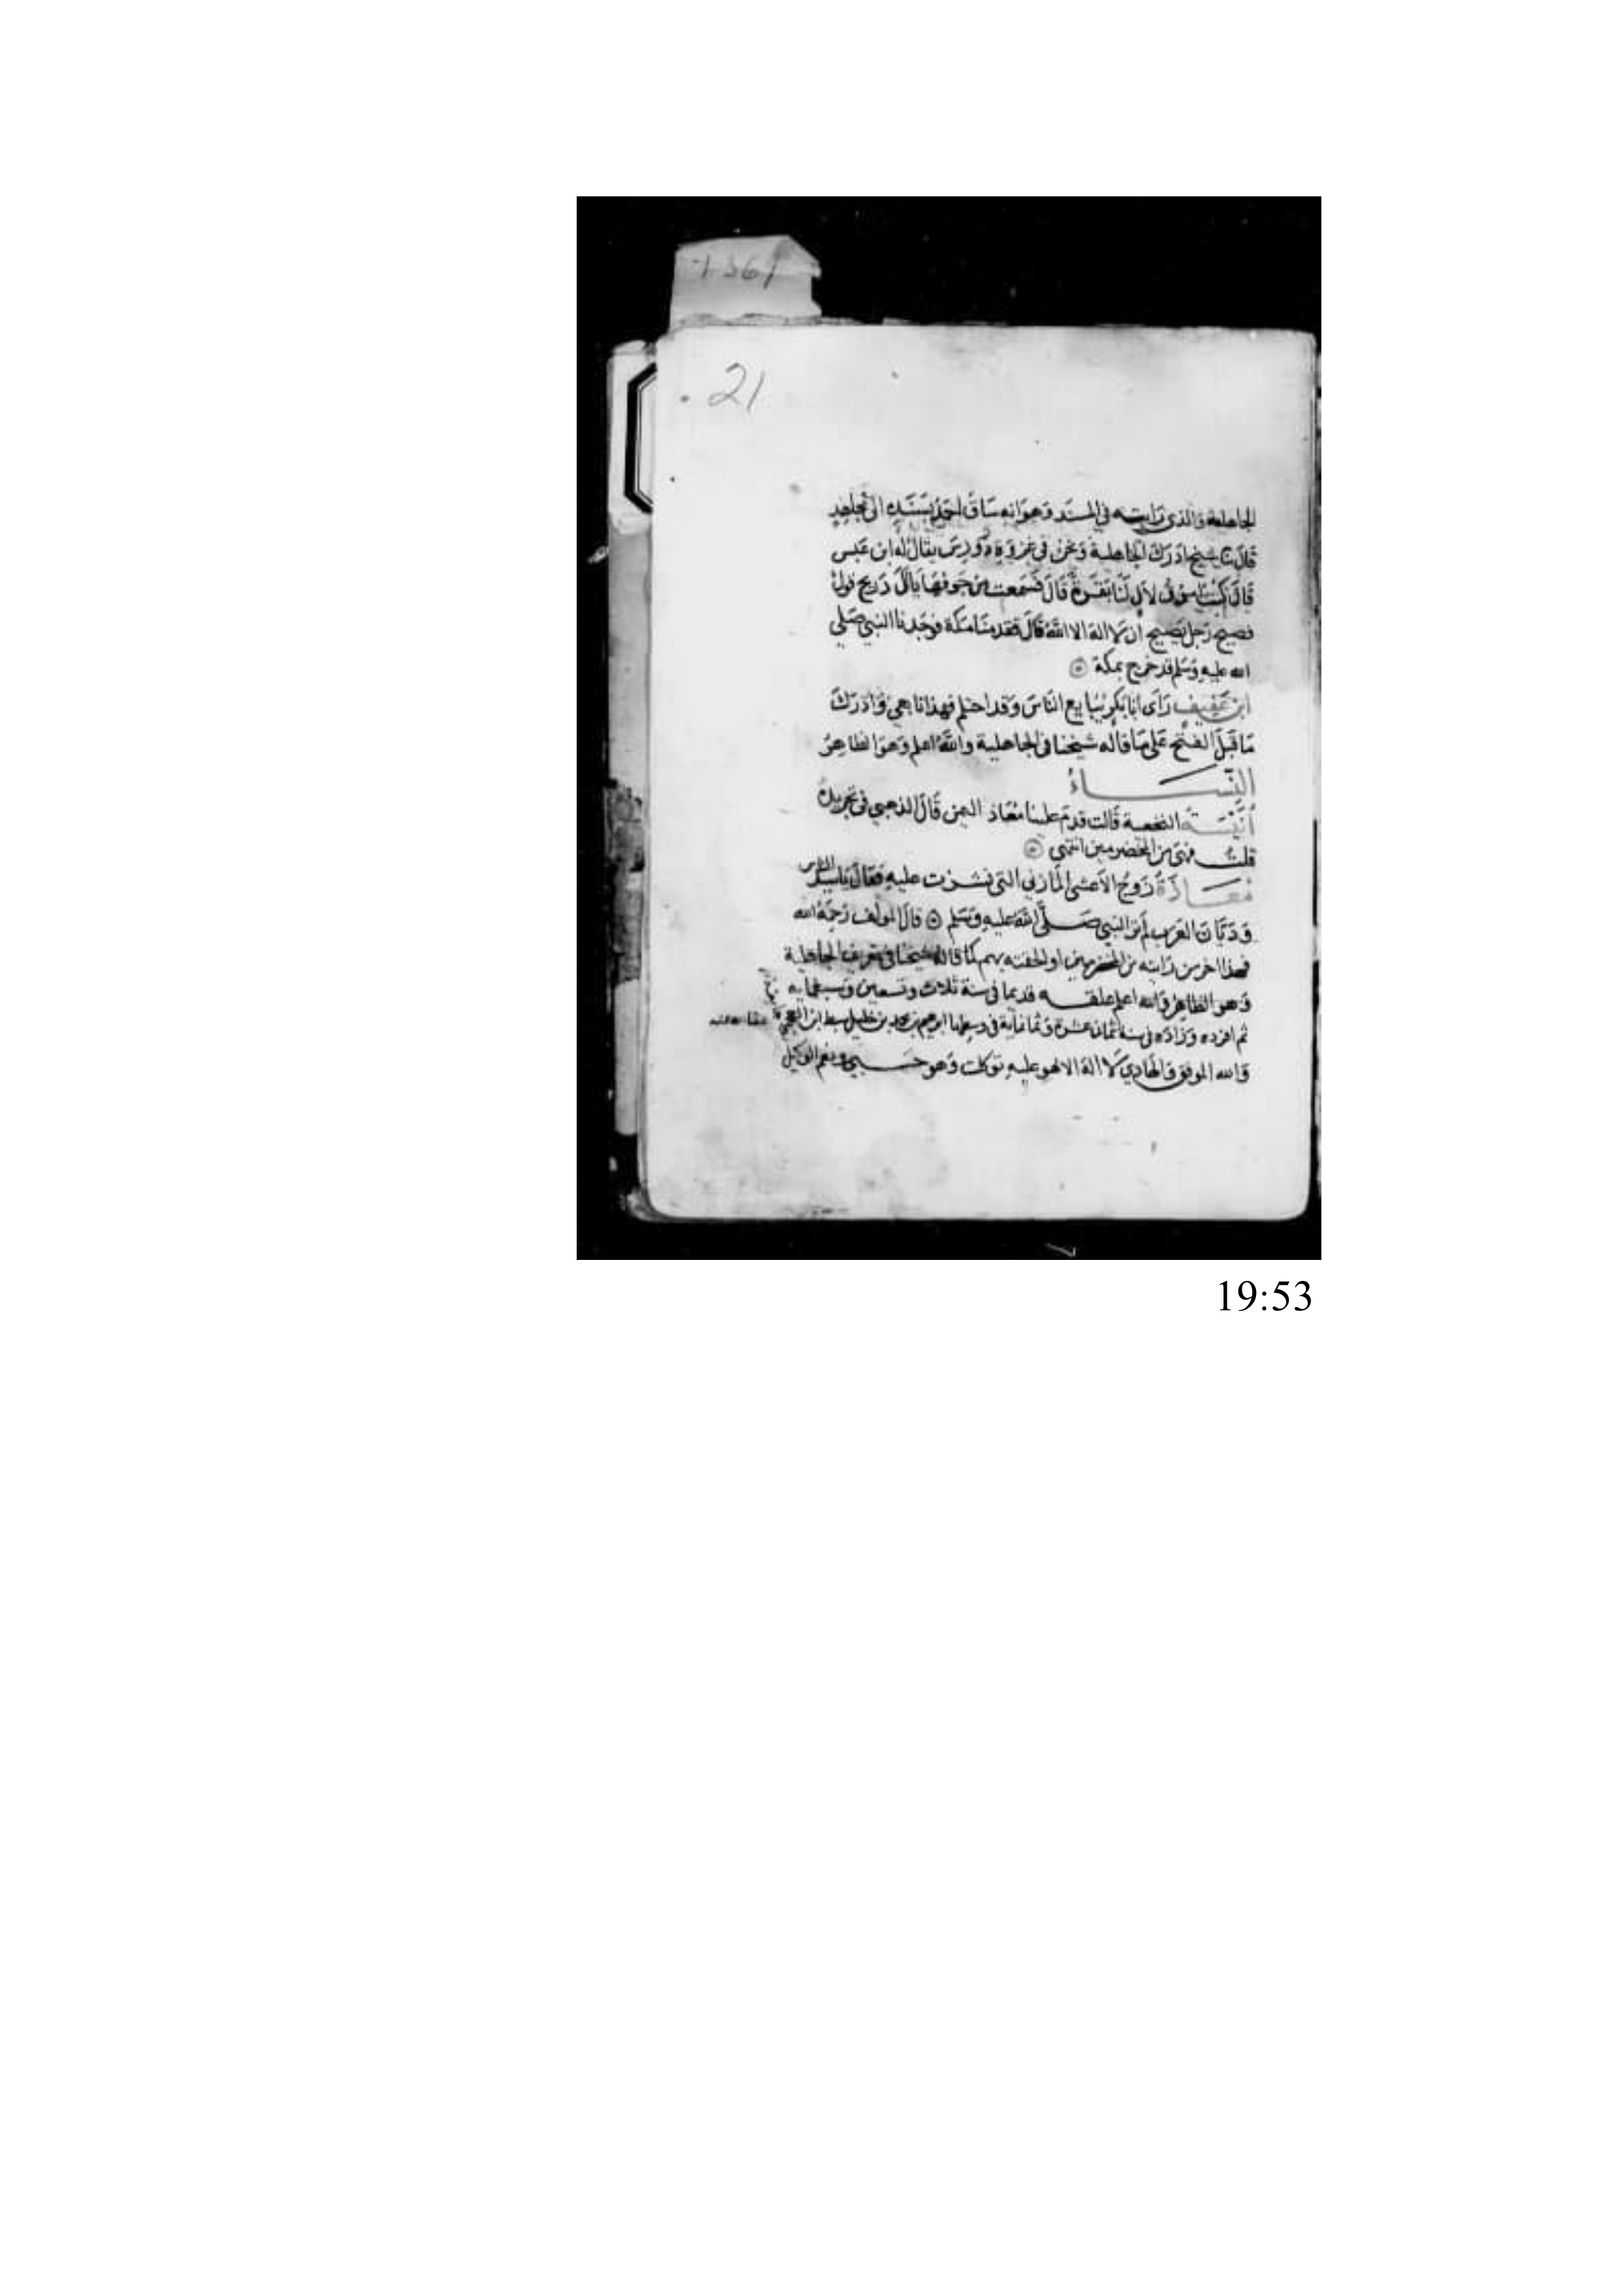 1361
21
الجاهلية والذى رايته في المسند وهو انه ساق احمد بسنده الى مجاهد
قال نا شيخ ادرك الجاهلية ونحن في غزوة رودس يقال له ابن عبس
قال كنت اسوق لال لنا بقرة قال فسمعت من جوفها يال ذريح قول
فصيح رجل يصيح ان لا اله الا الله قال فقدمنا مكة فوجدنا النبي صلى
الله عليه وسلم قد خرج بمكة
ابن عفيف راى ابا بكر يبايع الناس وقد احتلم فهذا تابعي وادرك
ما قبل الفتح على ما قاله شيخنا في الجاهلية والله اعلم وهو الظاهر
النساء
انيسة النخعية قالت قدم علينا معاذ اليمن قال الذهبي في تجريده
قلت فهي من المخضرمين انتهى
معاذة زوج الاعشى المازني التي نشزت عليه فقال يا سيد الناس
وديان العرب لم تر النبي صلى الله عليه وسلم قال المولف رحمه الله
فهذا اخر من رايته من المخضرمين او الحقته بهم كما قاله شيخنا في تعريف الجاهلية
وهو الظاهر والله اعلم علقه قديما في سنة ثلاث وتسعين وسبعمايه
ثم افرده وزاده في سنة ثمان عشرة وثمانماية ابرهيم بن محمد بن خليل سبط ابن العجمي عفا الله عنه
والله الموفق والهادي لا اله الا هو عليه توكلت وهو حسبي ونعم الوكيل
19:53